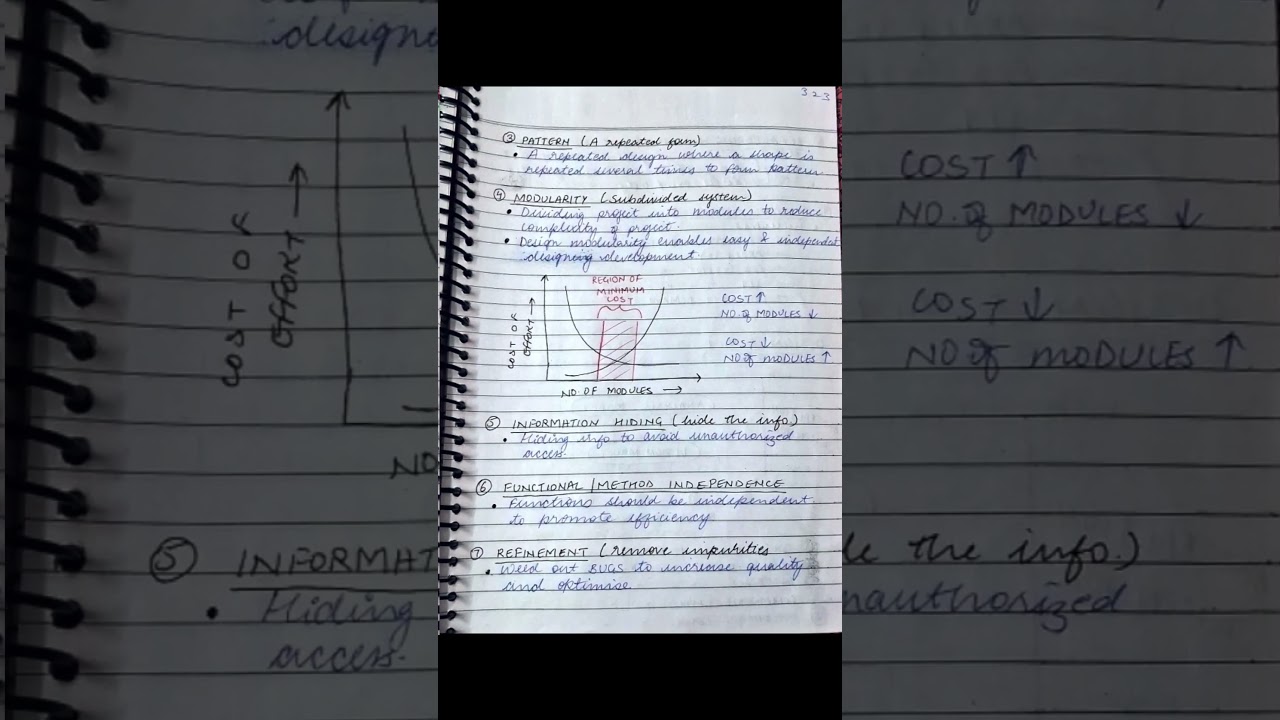 323
③ PATTERN (A repeated form)
• A repeated design where a shape is
repeated several times to form pattern
④ MODULARITY (Subdivided system)
• Dividing project into modules to reduce
complicity of project.
• Design modularity enables easy & independent
designing development.
REGION OF
MINIMUM
COST
COST OR
EFFORT →
NO. OF MODULES →
COST ↑
NO. of MODULES ↓
COST ↓
NO of MODULES ↑
⑤ INFORMATION HIDING (hide the info.)
• Hiding info to avoid unauthorized
access.
⑥ FUNCTIONAL/METHOD INDEPENDENCE
• Functions should be independent
to promote efficiency.
⑦ REFINEMENT (remove impurities
• Weed out BUGS to increase quality
and optimise
designing
COST OR
EFFORT →
NO
COST ↑
NO. of MODULES ↓
COST ↓
NO of MODULES ↑
⑤ INFORMAT
de the info.)
• Hiding
nauthorized
access.